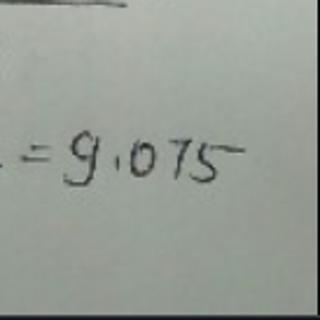 = 9.075